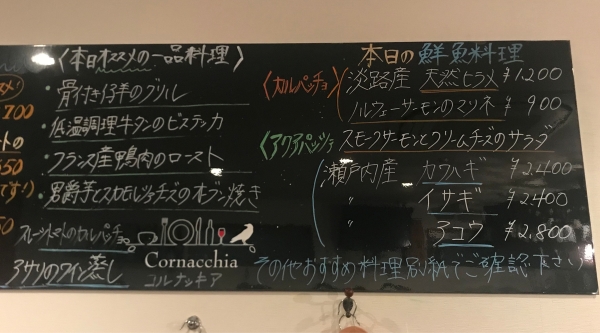 〈本日オススメの一品料理〉
・骨付き仔羊のグリル
・低温調理牛タンのビステッカ
・フランス産鴨肉のロースト
・男爵芋とスカモルツァチーズのオーブン焼き
フルーツトマトのカルパッチョ
アサリのワイン蒸し
Cornacchia
コルナッキア
700
トの
550
です!)
50
本日の鮮魚料理
〈カルパッチョ〉
淡路産 天然ヒラメ ¥1,200
ノルウェーサーモンのマリネ ¥900
スモークサーモンとクリームチーズのサラダ
〈アクアパッツァ〉
瀬戸内産 カワハギ ¥2,400
〃 イサギ ¥2,400
〃 アコウ ¥2,800
その他おすすめ料理別紙でご確認下さい